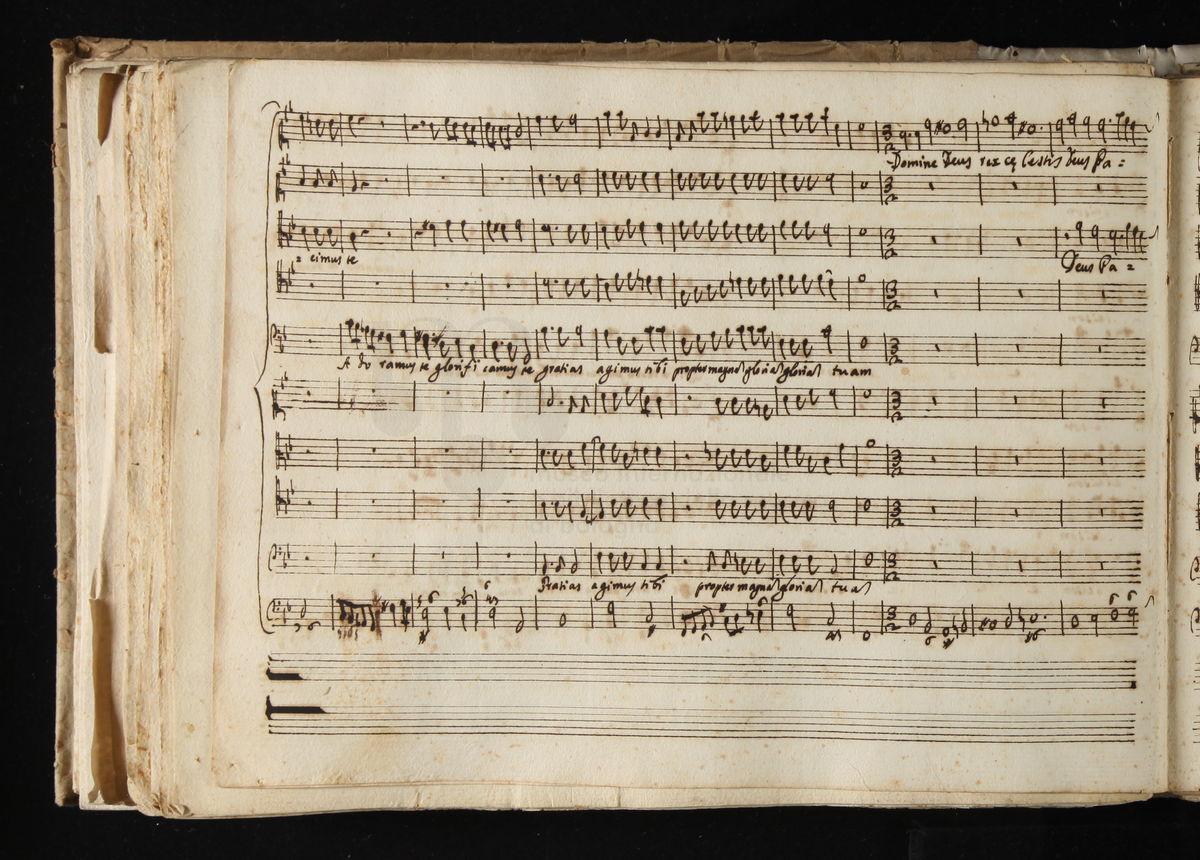 Domine Deus rex cęlestis Deus Pa =
= cimus te
Deus Pa =
A do ramus te glorifi camus te gratias agimus tibi propter magna gloria gloria tuam
museo internazionale
Gratias agimus tibi propter magna gloria tua